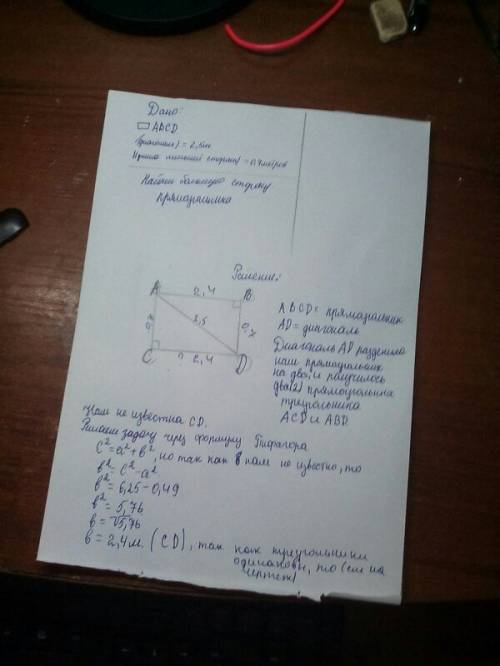 Дано:
▭ ABCD
(диагональ) = 2,5м
(длина меньшей стороны) = 0,7 метров
Найти большую сторону
прямоугольника
Решение:
A 2,4 B
0,7 2,5 0,7
C 2,4 D
ABCD = прямоугольник
AD = диагональ
Диагональ AD разделила
наш прямоугольник
на два, и получилось
два(2) прямоугольных
треугольника
ACD и ABD
Нам не известна CD.
Решаем задачу через формулу Пифагора
C² = a² + b², но так как b нам не известно, то
b² = c² - a²
b² = 6,25 - 0,49
b² = 5,76
b = √5,76
b = 2,4м (CD), так как треугольники
одинаковы, то (см на
чертеж)